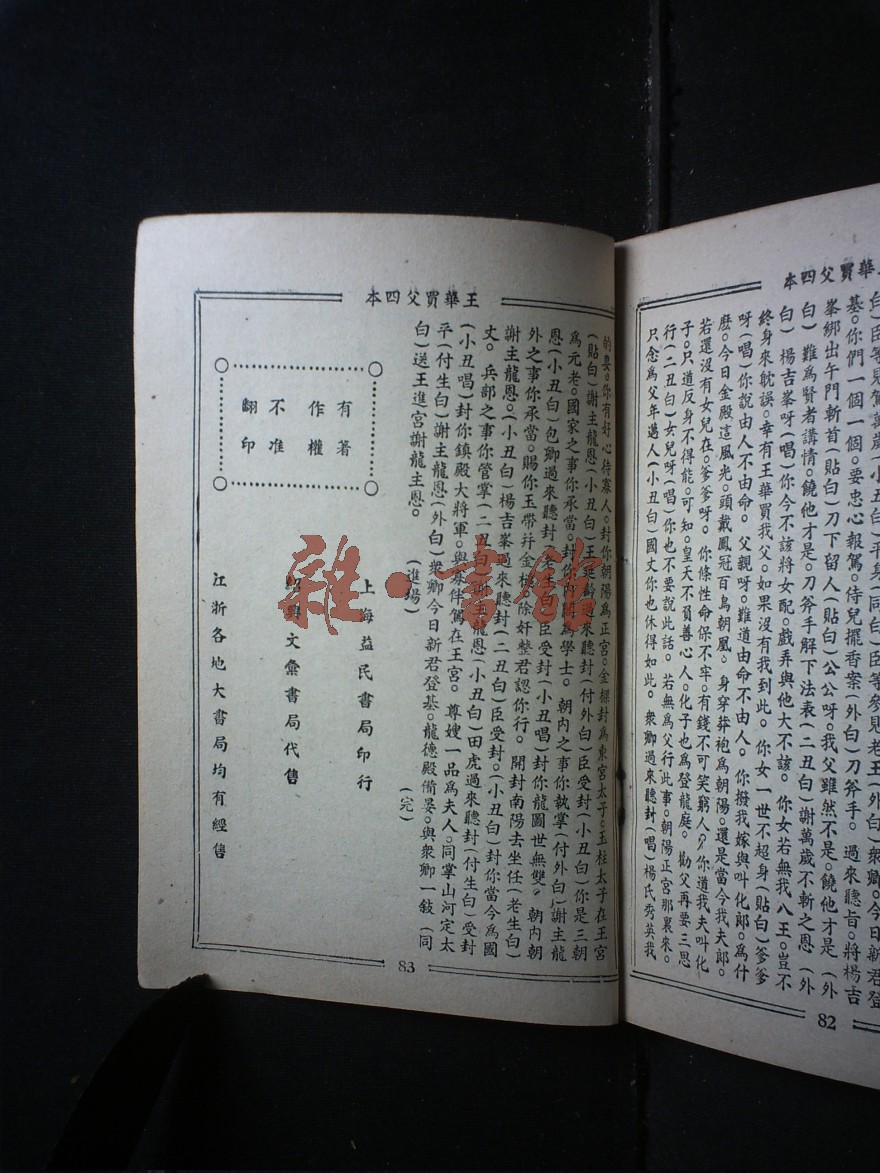 王華買父四本
白）臣等見駕萬歲（小丑白）平身（同白）臣等參見老王（外白）衆卿。今日新君登
基。你們一個一個。要忠心報駕。侍兒擺香案（外白）刀斧手。過來聽旨。將楊吉
峯綁出午門斬首（貼白）刀下留人（貼白）公公呀。我父雖然不是。饒他才是（外
白）難爲賢者講情。饒他才是。刀斧手解下法表（二丑白）謝萬歲不斬之恩（外
白）楊吉峯呀（唱）你今不該將女配。戲弄與他大不該。你女若無我八王。豈不
終身來躭誤。幸有王華買我父。如果沒有我到此。你女一世不超身（貼白）爹爹
呀（唱）你說由人不由命。父親呀。難道由命不由人。你撥我嫁與叫化郎。爲什
麽。今日金殿這風光。頭戴鳳冠百鳥朝凰。身穿莽袍爲朝陽。還是當今我夫郎。
若還沒有女兒在。爹爹呀。你條性命保不牢。有錢不可笑窮人。你道我夫叫化
子。只道反身不得能。可知。皇天不負善心人。化子也爲登龍庭。勸父再要三思
行（二丑白）女兒呀（唱）你也不要說此話。若無爲父行此事。朝陽正宮那裏來。
只念爲父年邁人（小丑白）國丈你也休得如此。衆卿過來聽封（唱）楊氏秀英我
82
王華買父四本
的妻。你有好心待寡人。封你朝陽爲正宮。金樑封爲東宮太子。玉柱太子在王宮
（貼白）謝主龍恩（小丑白）王廷齡過來聽封（付外白）臣受封（小丑白）你是三朝
爲元老。國家之事你承當。封你內閣爲學士。朝內之事你執掌（付外白）謝主龍
恩（小丑白）包卿過來聽封（老生白）臣受封（小丑唱）封你龍圖世無雙。朝內朝
外之事你承當。賜你玉帶幷金棍。除奸整君認你行。開封南陽去坐任（老生白）
謝主龍恩。（小丑白）楊吉峯過來聽封（二丑白）臣受封。（小丑白）封你當今爲國
丈。兵部之事你管掌（二丑白）謝主龍恩（小丑白）田虎過來聽封（付生白）受封
（小丑唱）封你鎮殿大將軍。與寡伴駕在王宮。尊嫂一品爲夫人。同掌山河定太
平（付生白）謝主龍恩（外白）衆卿今日新君登基。龍德殿備宴。與衆卿一敍（同
白）送王進宮謝龍主恩。（進場）
（完）
有著
作權
不准
翻印
上海益民書局印行
紹興文彙書局代售
江浙各地大書局均有經售
83
雜·書館